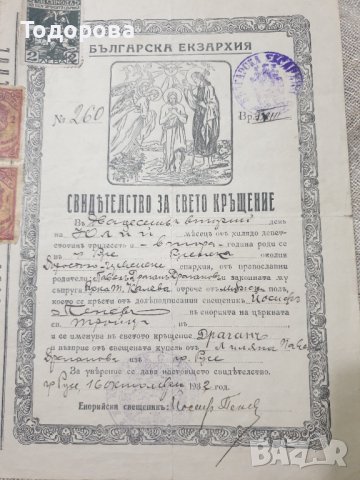 Тодорова
2
БЪЛГАРСКА ЕКЗАРХИЯ
БЪЛГАРСКА ЕКЗАРХИЯ
№ 260
Вр.
СВИДѢТЕЛСТВО ЗА СВЕТО КРЪЩЕНИЕ
Въ Двадесетъ и вторий день
на Юлий месецъ отъ хилядо девет-
стотинъ тридесето и втора година роди се
въ гр. Русе Русенска околия
епархия, отъ православни
родители Драганъ Драгановъ и законната му
съпруга Т. Колева отроче отъ мѫжки полъ,
което се кръсти отъ долѣподписания свещеникъ Иосифъ
Пеневъ въ енорията на църквата
Св. Троица
и се именува въ светото кръщение Драганъ
и възприе отъ свещената купелъ отъ Лиляна
Драганова гр. Русе
За уверение се дава настоящето свидѣтелство.
гр. Русе 16 октомврий 1932 год.
Енорийски свещеникъ: Иосиф Пенев
bazar.bg